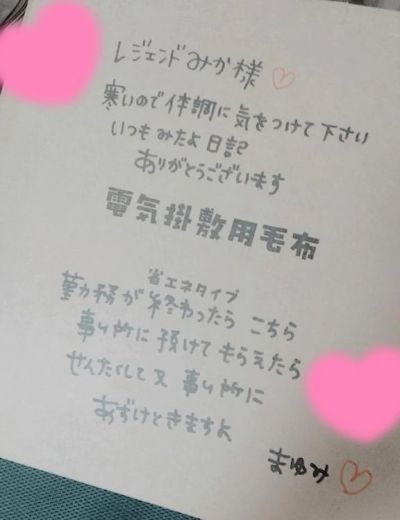 レジェンドみか様♡
寒いので体調に気をつけて下さい
いつもみたよ日記
ありがとうございます
電気掛敷用毛布
省エネタイプ
勤務が終わったら こちら
事ム所に 預けて もらえたら
せんたくして又 事ム所に
あずけときますよ
まゆみ♡